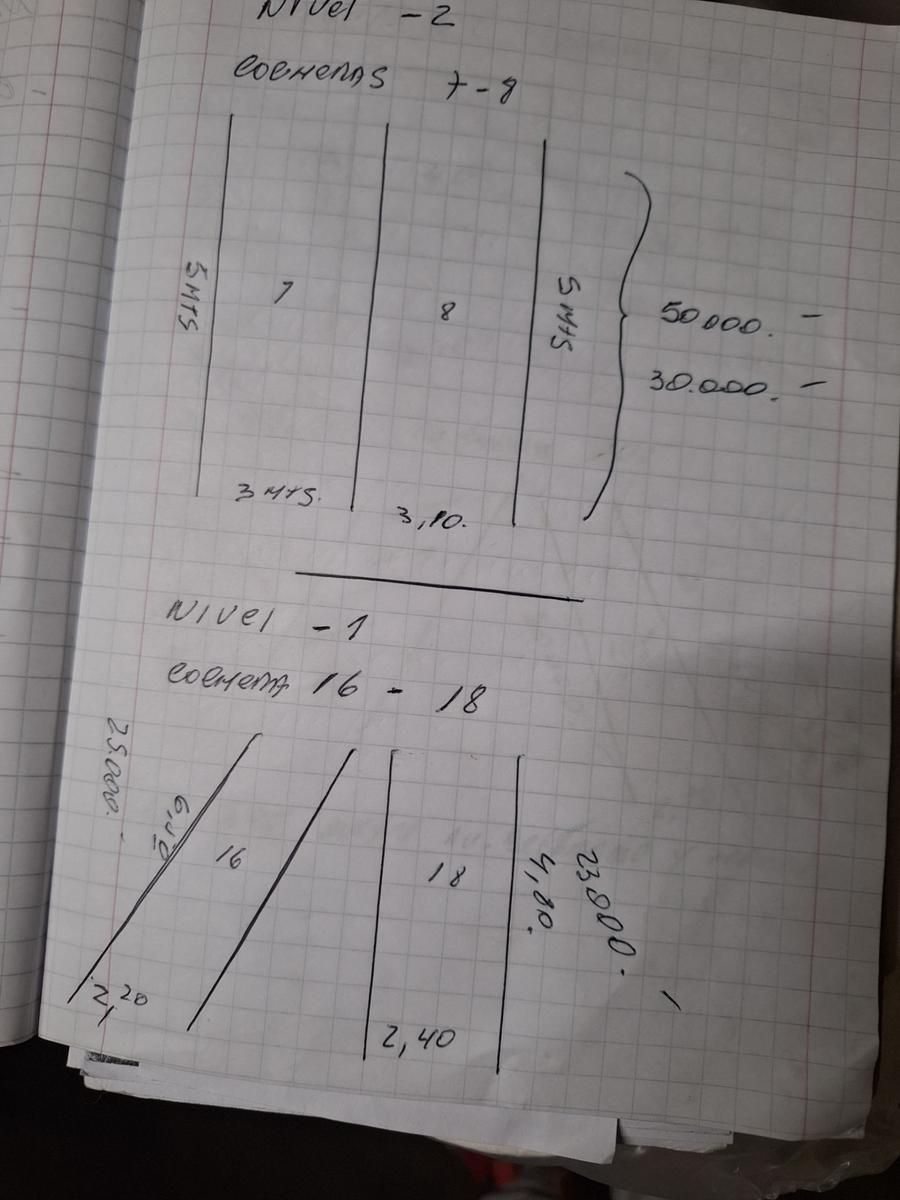 NIVEL -2
COCHERAS 7-8
5 MTS
7
8
5 MTS
50000. -
30.000. -
3 MTS.
3,10.
NIVEL -1
COCHERA 16 - 18
25.000.
16
18
4,80.
23.000. -
2,20
2,40